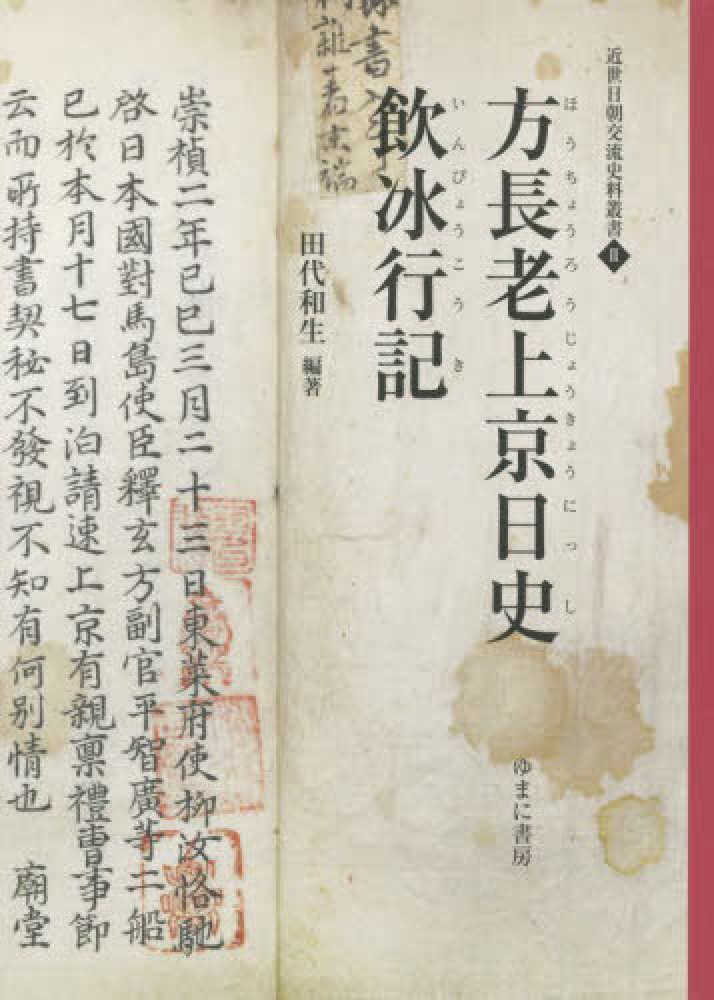 近世日朝交流史料叢書Ⅱ
ほうちょうろうじょうきょうにっし
方長老上京日史
いんぴょうこうき
飲冰行記
田代和生 編著
ゆまに書房
崇禎二年己巳三月二十三日東萊府使柳汝恪馳
啓日本國對馬島使臣釋玄方副官平智廣等二船
已於本月十七日到泊請速上京有親禀禮曹事節
云而所持書契秘不發視不知有何別情也 廟堂